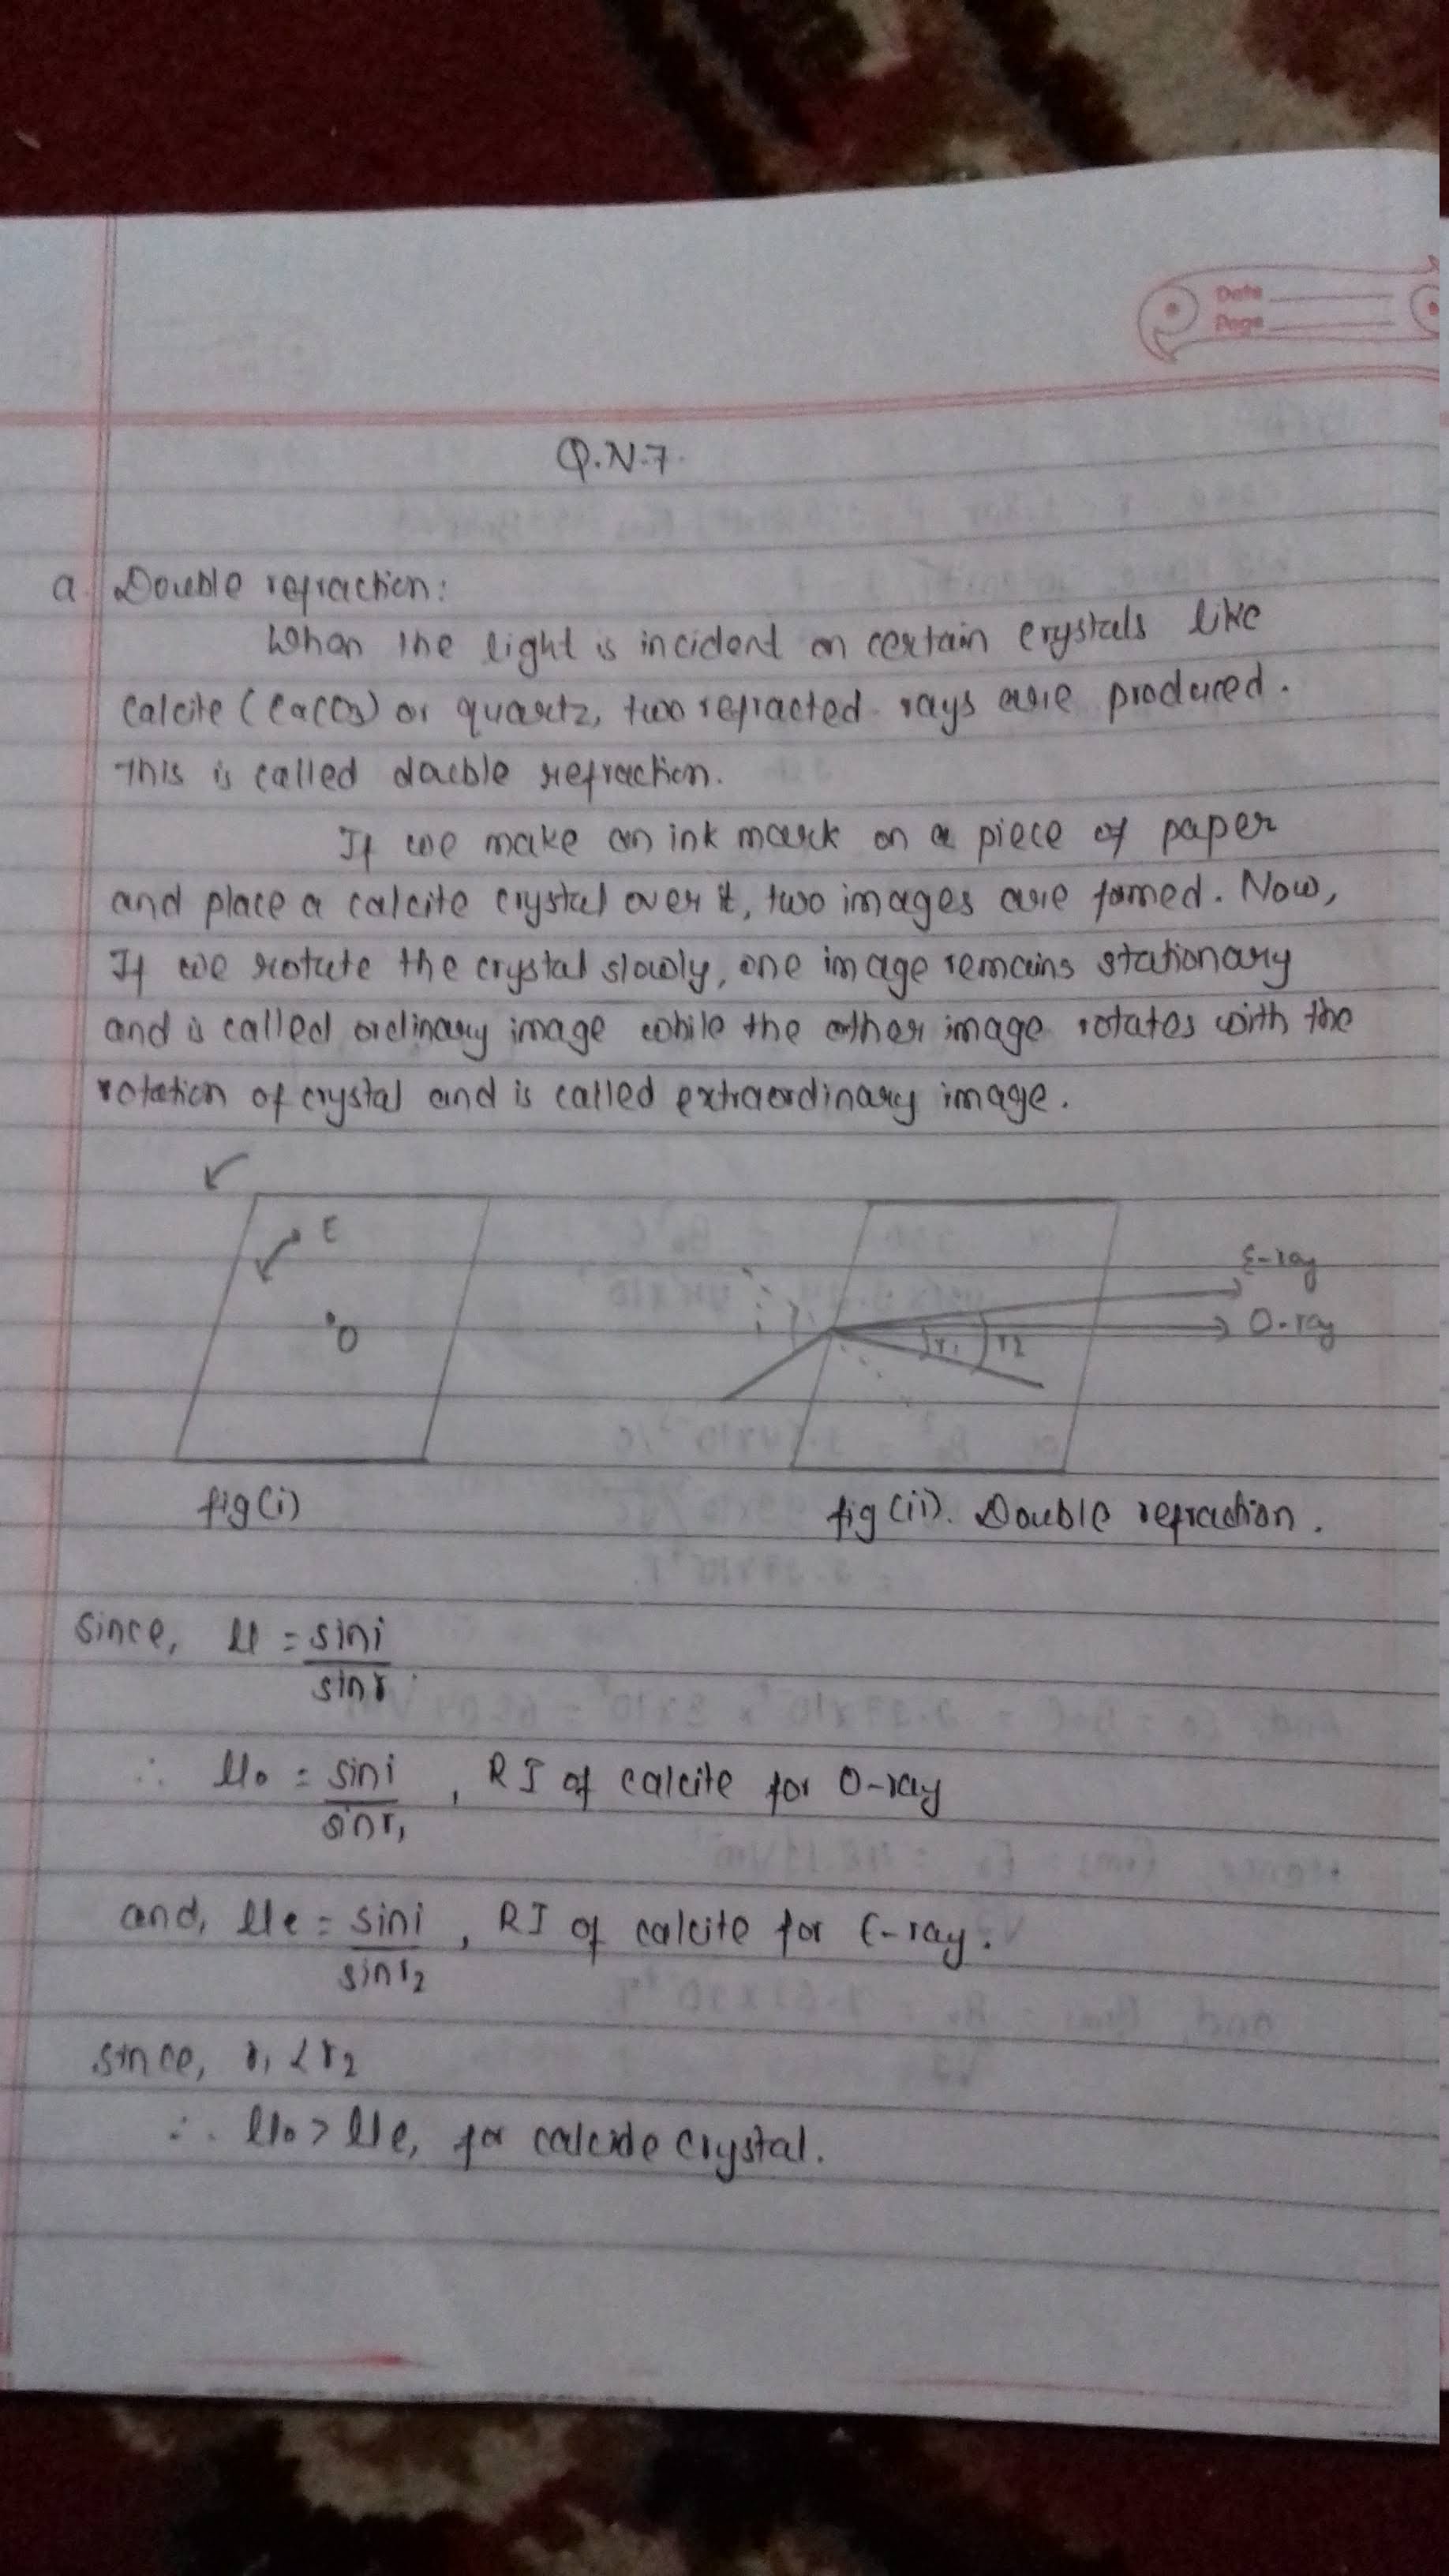 Date
Page
Q.N.7.
a. Double refraction:
When the light is incident on certain crystals like
calcite (CaCO3) or quartz, two refracted rays are produced.
This is called double refraction.
If we make an ink mark on a piece of paper
and place a calcite crystal over it, two images are fomed. Now,
If we rotate the crystal slowly, one image remains stationary
and is called ordinary image while the other image rotates with the
rotation of crystal and is called extraordinary image.
E
O
E-ray
O-ray
i
r1
r2
fig(i)
fig(ii). Double refraction.
since, μ = sini/sinr
∴ μo = sini/sinr1, RI of calcite for O-ray
and, μe = sini/sinr2, RI of calcite for E-ray.
since, r1 < r2
∴ μo > μe, for calcide crystal.